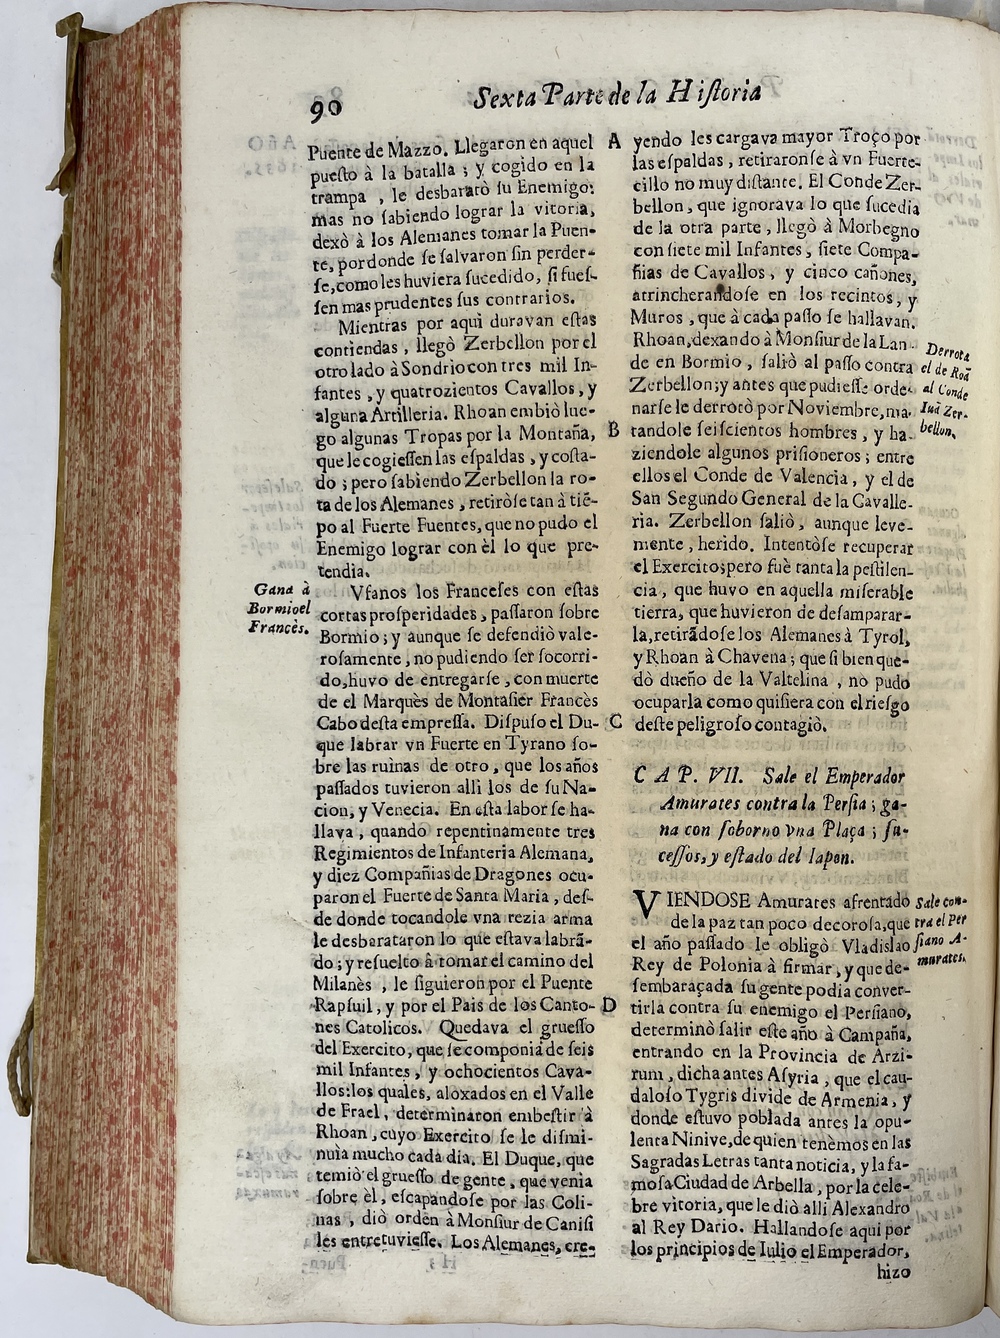 90
Sexta Parte de la Historia
Puente de Mazzo. Llegaron en aquel
puesto à la batalla ; y cogido en la
trampa , le desbaratò su Enemigo:
mas no sabiendo lograr la vitoria,
dexò à los Alemanes tomar la Puen-
te, por donde se salvaron sin perder-
se, como les huviera sucedido, si fues-
sen mas prudentes sus contrarios.
Mientras por aqui duravan estas
contiendas , llegò Zerbellon por el
otro lado à Sondrio con tres mil In-
fantes , y quatrozientos Cavallos, y
alguna Artilleria. Rhoan embiò lue-
go algunas Tropas por la Montaña,
que le cogiessen las espaldas , y costa-
do ; pero sabiendo Zerbellon la ro-
ta de los Alemanes , retiròse tan à tiē-
po al Fuerte Fuentes, que no pudo el
Enemigo lograr con èl lo que pre-
tendia.
Gana à
Bormio el
Francès.
Vfanos los Franceses con estas
cortas prosperidades , passaron sobre
Bormio ; y aunque se defendiò vale-
rosamente , no pudiendo ser socorri-
do, huvo de entregarse , con muerte
de el Marquès de Montasier Francès
Cabo desta empressa. Dispuso el Du-
que labrar vn Fuerte en Tyrano so-
bre las ruinas de otro , que los años
passados tuvieron alli los de su Na-
cion, y Venecia. En esta labor se ha-
llava , quando repentinamente tres
Regimientos de Infanteria Alemana,
y diez Compañias de Dragones ocu-
paron el Fuerte de Santa Maria , des-
de donde tocandole vna rezia arma
le desbarataron lo que estava labrã-
do ; y resuelto â tomar el camino del
Milanès , le siguieron por el Puente
Rapsuil, y por el Pais de los Canto-
nes Catolicos. Quedava el gruesso
del Exercito, que se componia de seis
mil Infantes , y ochocientos Cava-
llos: los quales, aloxados en el Valle
de Frael , determinaron embestir à
Rhoan , cuyo Exercito se le dismi-
nuìa mucho cada dia. El Duque, que
temiò el gruesso de gente , que venia
sobre èl , escapandose por las Coli-
nas , diò orden à Monsiur de Canisi
les entretuviesse. Los Alemanes, cre-
A
B
C
D
yendo les cargava mayor Troço por
las espaldas , retiraronse à vn Fuerte-
cillo no muy distante. El Conde Zer-
bellon , que ignorava lo que sucedia
de la otra parte , llegò à Morbegno
con siete mil Infantes , siete Compa-
ñias de Cavallos , y cinco cañones,
atrincherandose en los recintos, y
Muros , que à cada passo se hallavan.
Rhoan, dexando à Monsiur de la Lan-
de en Bormio , saliò al passo contra
Zerbellon; y antes que pudiesse orde-
narse le derrotò por Noviembre, ma-
tandole seiscientos hombres , y ha-
ziendole algunos prisioneros ; entre
ellos el Conde de Valencia , y el de
San Segundo General de la Cavalle-
ria. Zerbellon saliò , aunque leve-
mente , herido. Intentòse recuperar
el Exercito; pero fuè tanta la pestilen-
cia , que huvo en aquella miserable
tierra, que huvieron de desamparar-
la, retirãdose los Alemanes à Tyrol,
y Rhoan à Chavena ; que si bien que-
dò dueño de la Valtelina , no pudo
ocuparla como quisiera con el riesgo
deste peligroso contagiò.
Derrota
el de Roã
al Conde
Iuã Zer-
bellon.
CAP. VII. Sale el Emperador
Amurates contra la Persia ; ga-
na con soborno vna Plaça ; su-
cessos, y estado del Iapon.
VIENDOSE Amurates afrentado
de la paz tan poco decorosa, que
el año passado le obligò Vladislao
Rey de Polonia à firmar, y que de-
sembaraçada su gente podia conver-
tirla contra su enemigo el Persiano,
determinò salir este año à Campaña,
entrando en la Provincia de Arzi-
rum , dicha antes Asyria , que el cau-
daloso Tygris divide de Armenia, y
donde estuvo poblada antes la opu-
lenta Ninive, de quien tenèmos en las
Sagradas Letras tanta noticia, y la fa-
mosa Ciudad de Arbella , por la cele-
bre vitoria, que le diò alli Alexandro
al Rey Dario. Hallandose aqui por
los principios de Iulio el Emperador,
hizo
Sale con-
tra el Per
siano A-
murates.